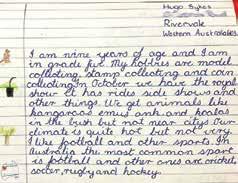 Hugo Sykes
Rivervale
Western Australia
I am nine years of age and I am
in grade five. My hobbies are model
collecting, stamp collecting and coin
collecting. In October we have the royal
show. It has ride side shows and
other things. We get animals like
kangaroos emus and koalas
in the bush but not near citys. Our
climate is quite hot but not very.
I like football and other sports. In
Australia the most common sport
is football and other ones are cricket,
soccer, rugby and hockey.